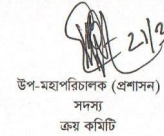 21/3
উপ-মহাপরিচালক (প্রশাসন)
সদস্য
ক্রয় কমিটি